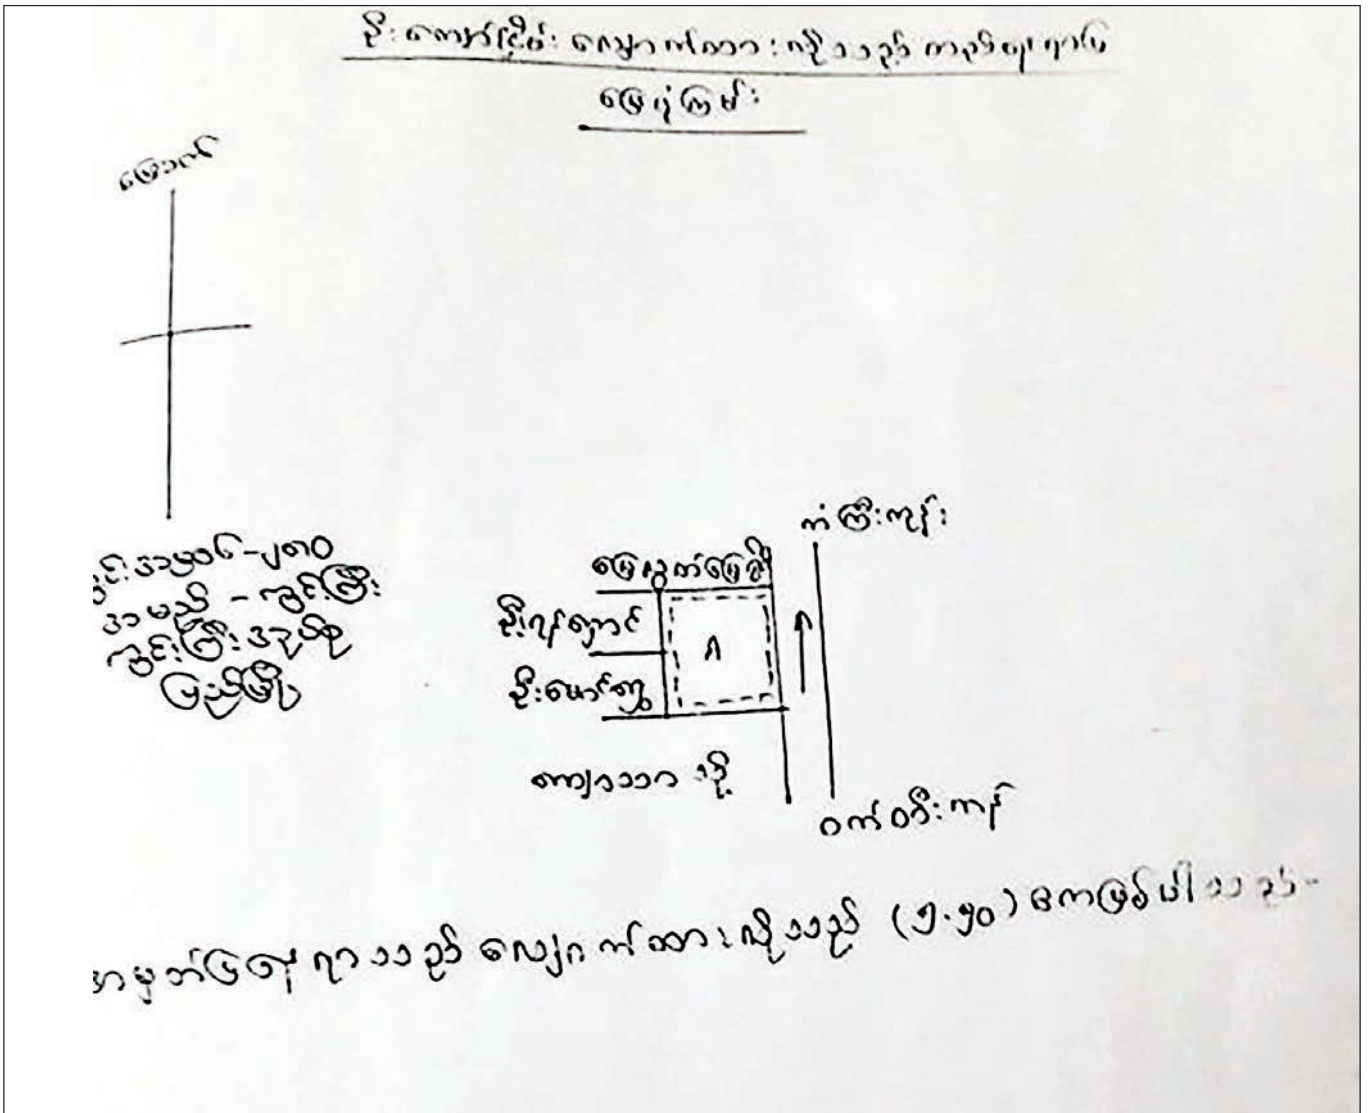 ဦးကျော်ငြိမ်း လျှောက်ထားလိုသည့် တည်နေရာပြ
မြေပုံကြမ်း
မြောက်
ကွင်းအမှတ် - ၂၈၀
အမည် - ကွင်းကြီး
ကွင်းကြီးအုပ်စု
ပြည်မြို့
ကံကြီးကုန်း
မြေလွတ်မြေရိုင်း
ဦးရန်နောင်
ဦးမောင်ထွေ
ကျောသာသို့
ဝက်ဝံ့ကန်
အမှတ်ပြနေရာသည် လျှောက်ထားလိုသည့် (၅.၅၀) ဧကဖြစ်ပါသည်။